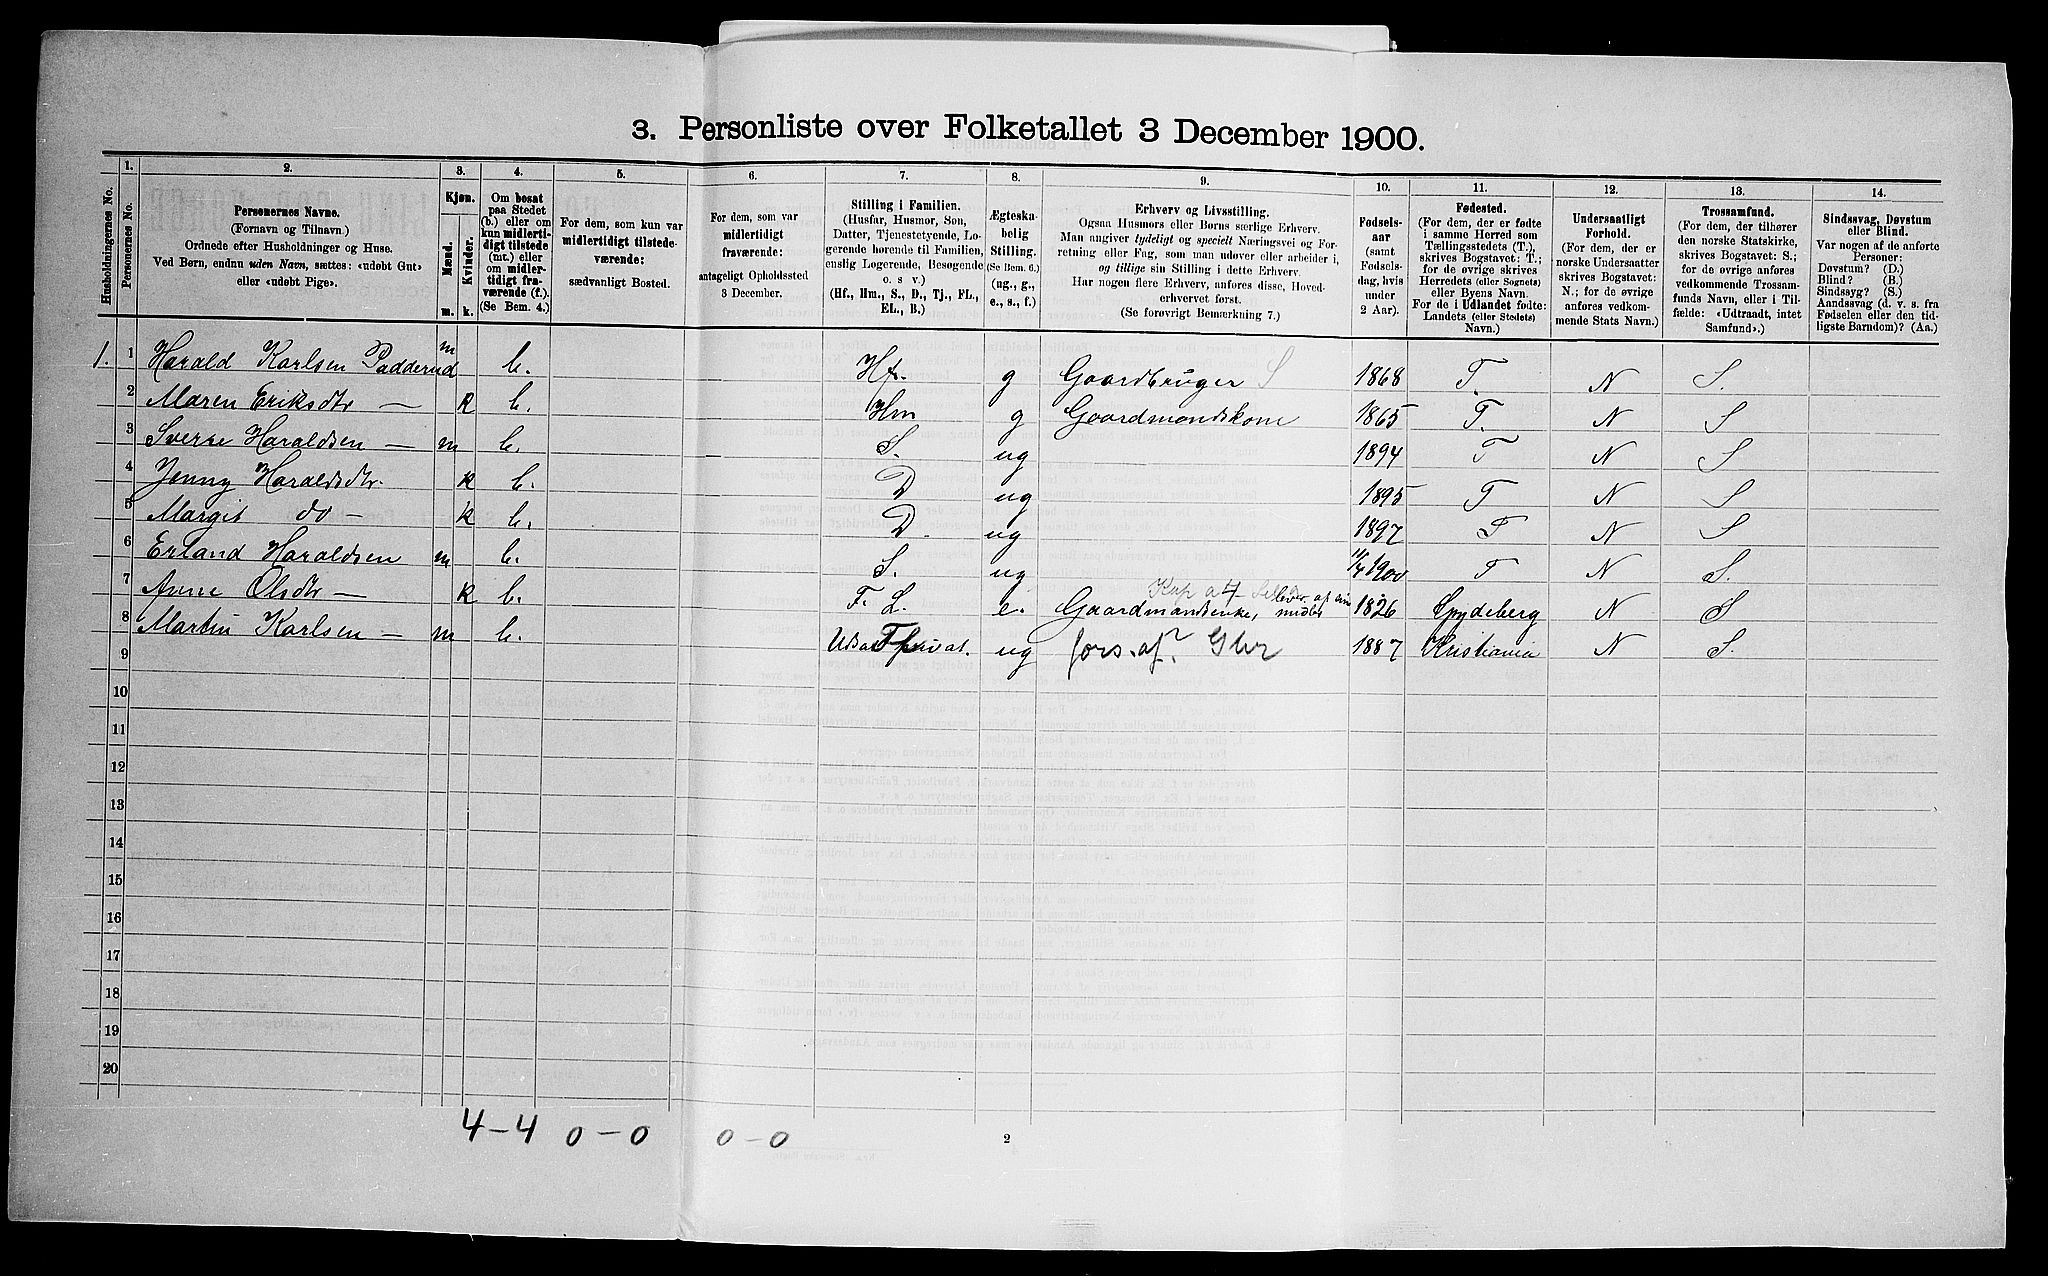 3. Personliste over Folketallet 3 December 1900.
Husholdningernes No.
1. Personernes No.
2. Personernes Navne.
(Fornavn og Tilnavn.)
Ordnede efter Husholdninger og Huse.
Ved Børn, endnu uden Navn, sættes: «udøbt Gut»
eller «udøbt Pige».
3. Kjøn.
Mænd. Kvinder.
m. k.
4.
Om bosat
paa Stedet
(b.) eller om
kun midlerti-
digt tilstede
(mt.) eller
om midler-
tidigt fra-
værende (f.).
(Se Bem. 4.)
5.
For dem, som kun var
midlertidigt tilstede-
værende:
sædvanligt Bosted.
6.
For dem, som var
midlertidigt
fraværende:
antageligt Opholdssted
3 December.
7.
Stilling i Familien.
(Husfar, Husmor, Søn,
Datter, Tjenestetyende, Lo-
gerende hørende til Familien,
enslig Logerende, Besøgende
o. s. v.)
(Hf., Hm., S., D., Tj., FL.,
EL., B.)
8.
Ægteska-
belig
Stilling.
(Se Bem. 6.)
(ug., g.,
e., s., f.)
9.
Erhverv og Livsstilling.
Ogsaa Husmors eller Børns særlige Erhverv.
Man angiver tydeligt og specielt Næringsvei og For-
retning eller Fag, som man udøver eller arbeider i,
og tillige sin Stilling i dette Erhverv.
Har nogen flere Erhverv, anføres disse, Hoved-
erhvervet først.
(Se forøvrigt Bemærkning 7.)
10.
Fødsels-
aar
(samt
Fødsels-
dag, hvis
under
2 Aar).
11.
Fødested.
(For dem, der er fødte
i samme Herred som
Tællingsstedets (T.),
skrives Bogstavet: T.;
for de øvrige skrives
Herredets (eller Sognets)
eller Byens Navn.
For de i Udlandet fødte:
Landets (eller Stedets)
Navn.)
12.
Undersaatligt
Forhold.
(For dem, der er
norske Undersaatter
skrives Bogstavet:
N.; for de øvrige
anføres vedkom-
mende Stats Navn.)
13.
Trossamfund.
(For dem, der tilhører
den norske Statskirke,
skrives Bogstavet: S.;
for de øvrige anføres
vedkommende Trossam-
funds Navn, eller i Til-
fælde: «Udtraadt, intet
Samfund».)
14.
Sindssvag, Døvstum
eller Blind.
Var nogen af de anførte
Personer:
Døvstum? (D.)
Blind? (B.)
Sindssyg? (S.)
Aandssvag (d. v. s. fra
Fødselen eller den tid-
ligste Barndom)? (Aa.)
1. 1 Harald Karlsen Padderud m b. Hf. g Gaardbruger S 1868 T. N S.
2 Maren Eriksdtr — k b. Hm g Gaardmandskone 1865 T. N S
3 Sverre Haraldsen — m b. S. ug 1894 T N S
4 Jenny Haraldsdtr. k b. D ug 1895 T N S
5 Margit do — k b. D. ug 1897 T N S
6 Erland Haraldsen m b. S. ug 11/4 1900 T N S.
7 Anne Olsdtr — k b. F. L. e. Gaardmandsenke, lever af sine midler 1826 Spydeberg N S
8 Martin Karlsen — m b. ug fors. af 1887 Kristiania N S.
9
10
11
12
13
14
15
16
17
18
19
20
4-4 0-0 0-0
2